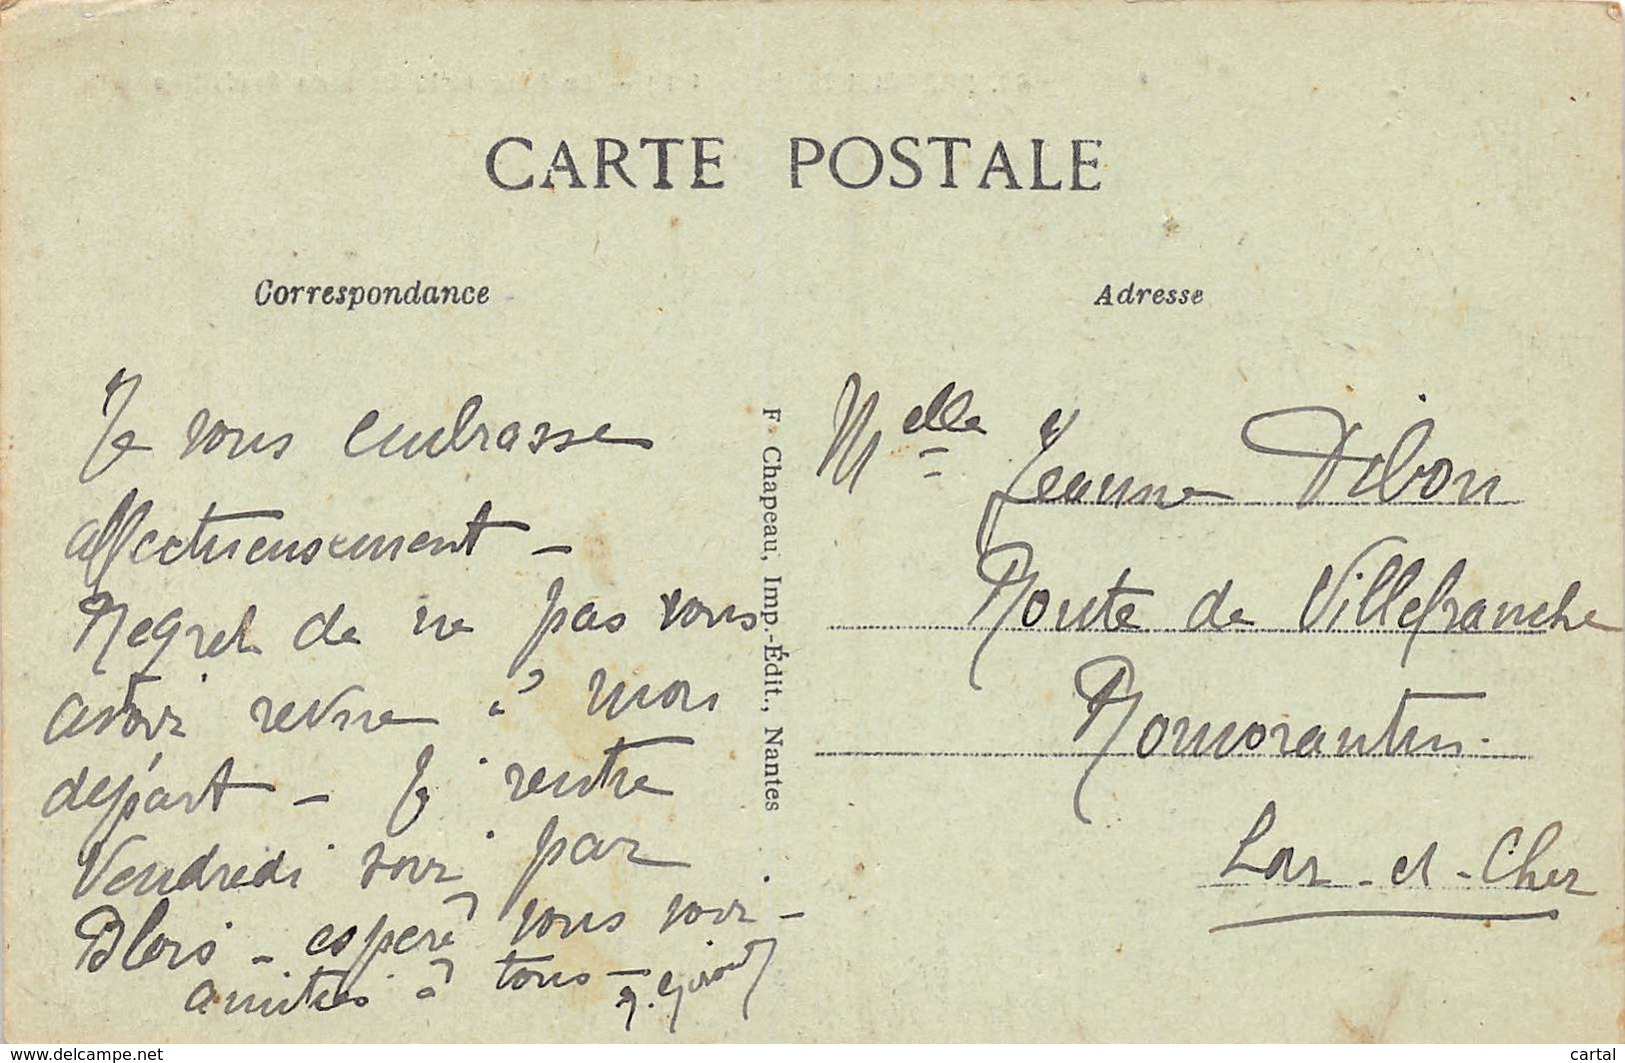 CARTE POSTALE
Correspondance
Je vous embrasse
affectueusement -
Regret de ne pas vous
avoir revue à mon
départ - Je rentre
Vendredi soir par
Blois - espère vous voir -
amitiés à tous -
F. Chapeau, Imp.-Édit., Nantes
Adresse
Melle Jeanne Dibon
Route de Villefranche
Romorantin.
Loir-et-Cher
www.delcampe.net
cartal